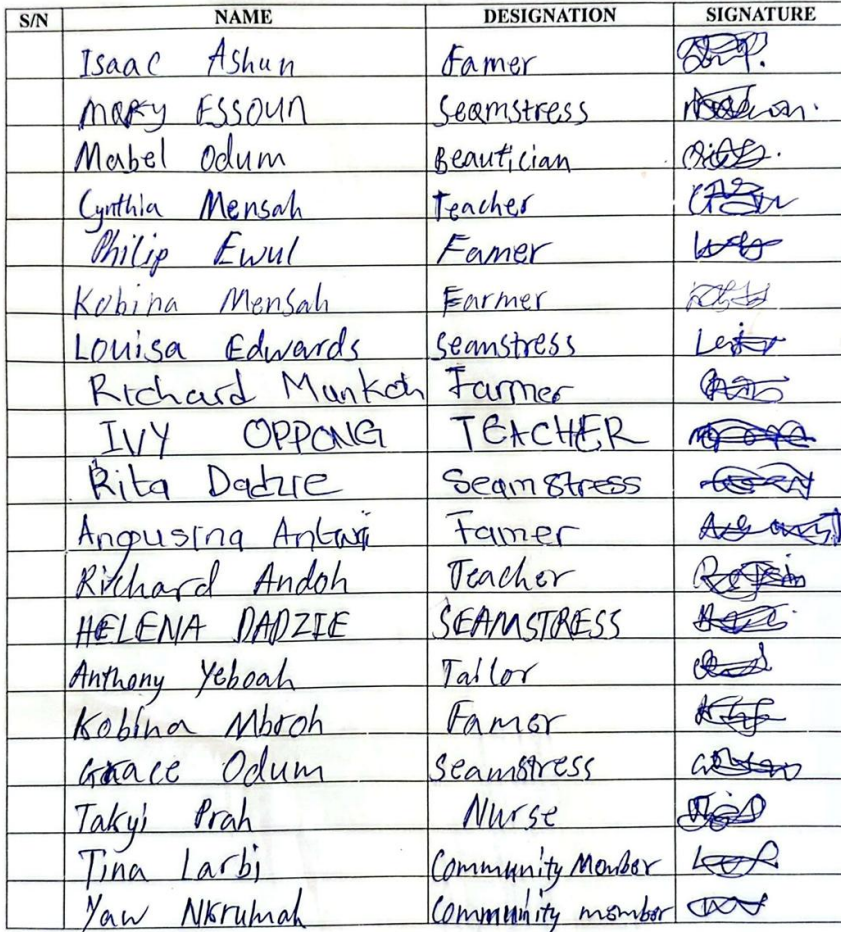 S/N NAME DESIGNATION SIGNATURE
Isaac Ashun Famer
MARY ESSOUN Seamstress
Mabel Odum Beautician
Cynthia Mensah Teacher
Philip Ewul Famer
Kobina Mensah Farmer
Louisa Edwards Seamstress
Richard Mankoh Farmer
IVY OPPONG TEACHER
Rita Dadzie Seamstress
Angusina Antwi Famer
Richard Andoh Teacher
HELENA DADZIE SEAMSTRESS
Anthony Yeboah Tailor
Kobina Mbroh Famer
Grace Odum Seamstress
Takyi Prah Nurse
Tina Larbi Community Member
Yaw Nkrumah Community member